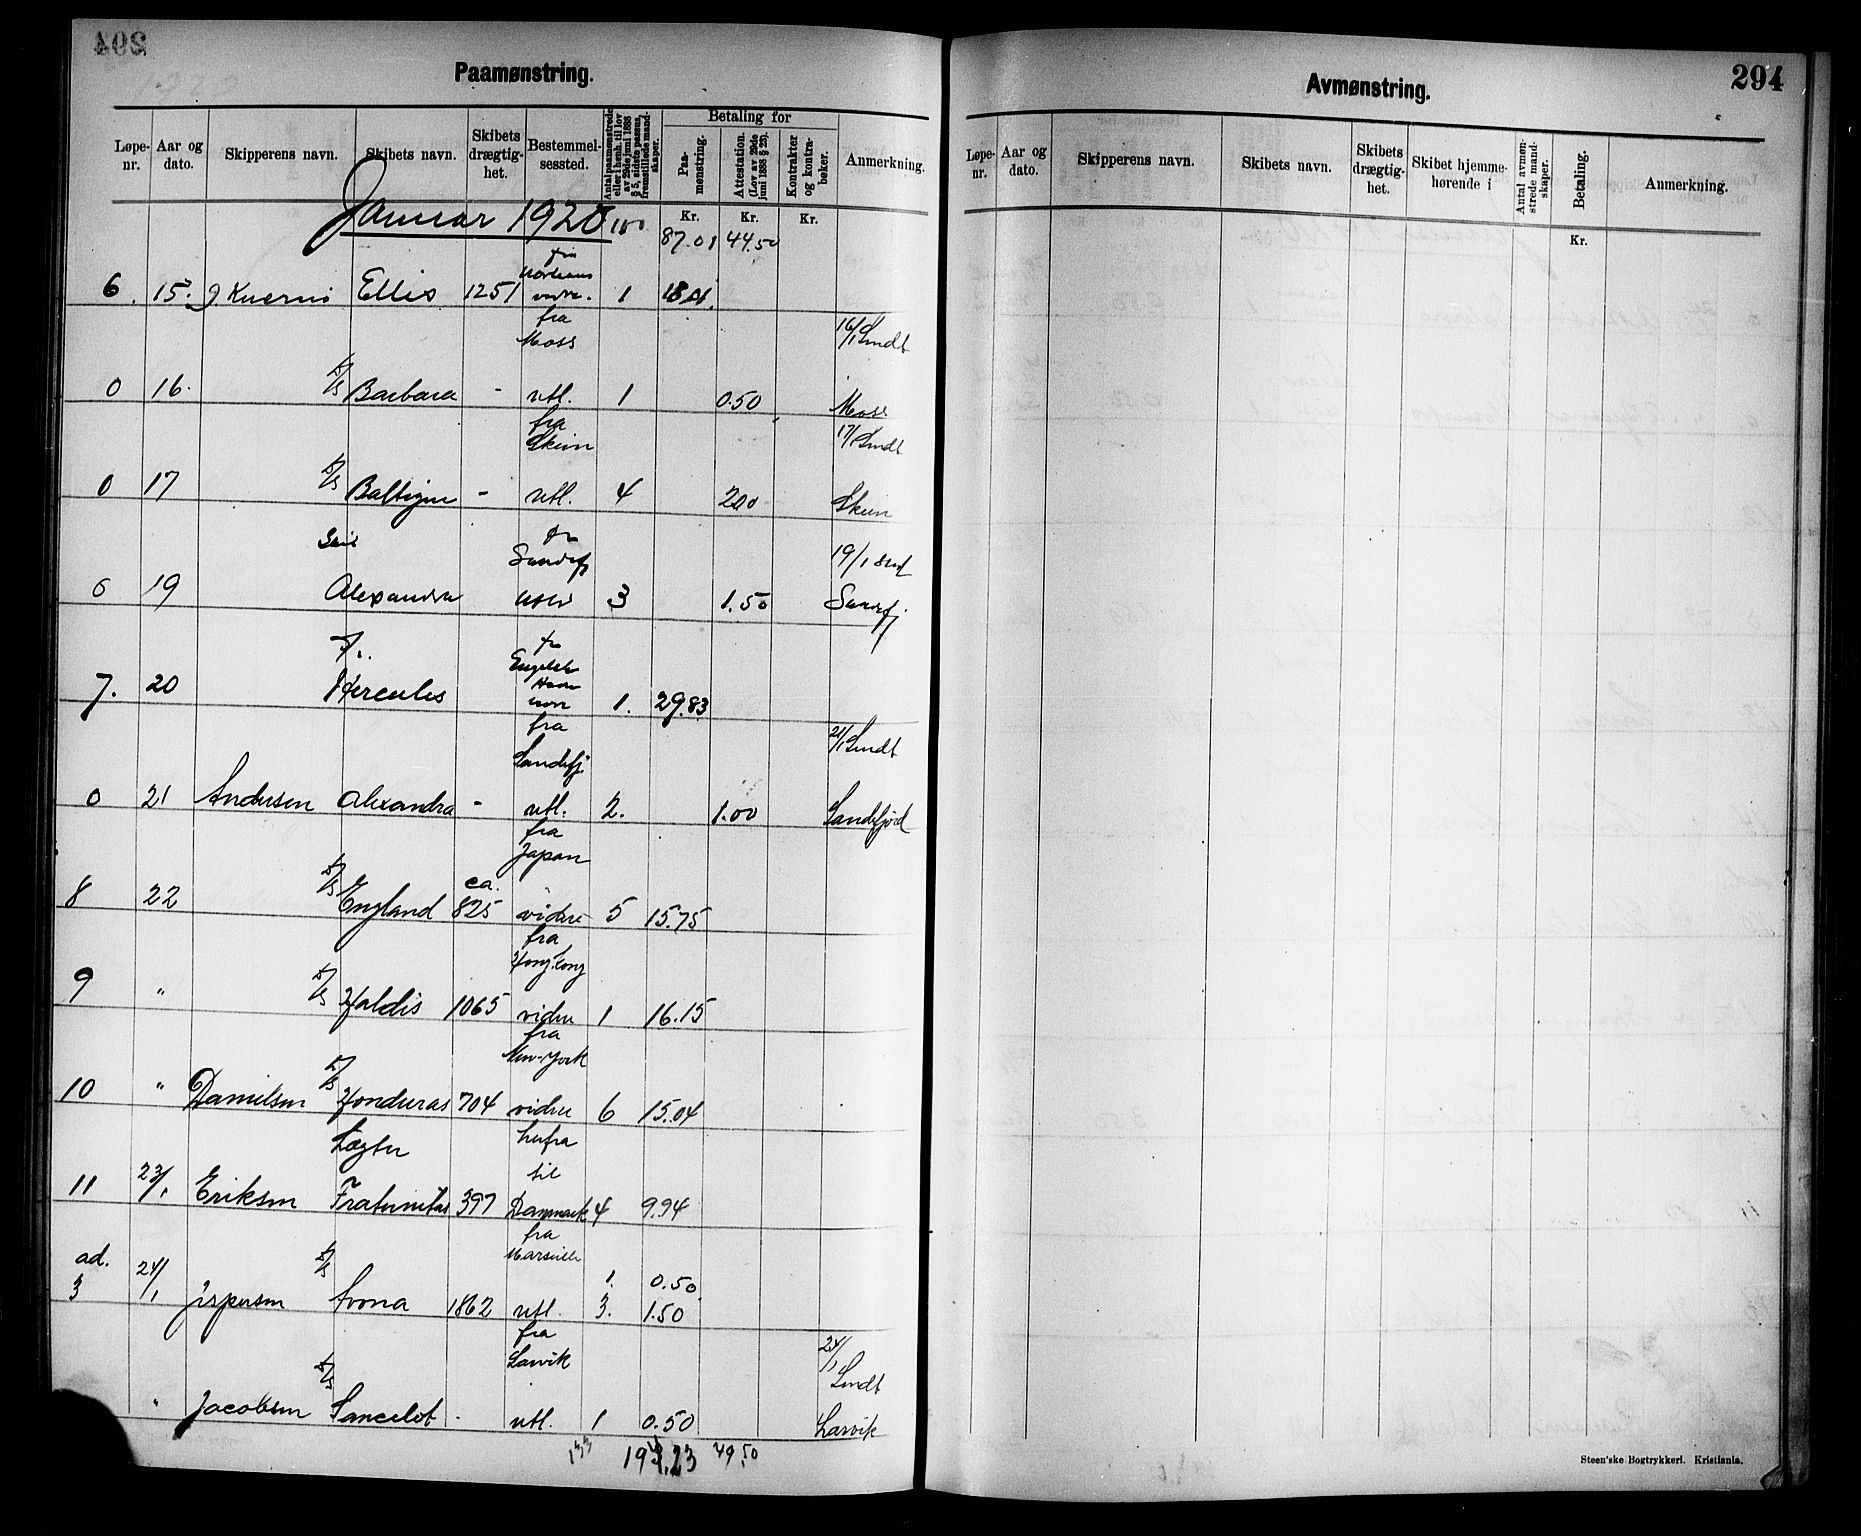 294
Paamønstring.
Løpe-nr. Aar og dato. Skipperens navn. Skibets navn. Skibets drægtig-het. Bestemmel-sessted. Antal paamønstrede eller i henh. til lov av 29de juni 1888 § 5, sidste passus, fremstillede mand-skaper. Betaling for Paa-mønstring. Attestation. (Lov av 29de juni 1888 § 23). Kontrakter og kontra-bøker. Anmerkning.
Kr. Kr. Kr.
Januar 1920 87.01 44.50
6. 15. J. Ellis 1251 1 18.01
fra Moss 16/1 Sendt
0 16. D/S Barbara - utl. 1 0.50 Moss
fra Skien 17/1 Sendt
0 17 D/S - utl. 4 2.00 Skien
fra Sandefj 19/1 send
0 19 Alexandra 3 1.50 Sandefj
fra
7. 20 Hercules 1. 29.83
fra Sandefj 21/1 Sendt
0 21 Andersen Alexandra - utl. 2. 1.00 Sandefjord
fra Japan
8 22 D/S England ca. 825 vidre 5 15.75
fra Hongkong
9 " D/S Haldis 1065 vidre 1 16.15
fra New-York
10 " Danielsen D/S Honduras 704 vidre 6 15.04
Lægter herfra til
11 23/1 Eriksen Fraternitas 397 Danmark 4 9.94
fra Marseille
1. 0.50
ad. 3 24/1 Jespersen D/S Ivona 1862 utl. 3. 1.50
fra Larvik 24/1 Sendt
" Jacobsen D/S Lancelot - utl. 1 0.50 Larvik
133 194.23 49.50
Avmønstring.
294
Løpe-nr. Aar og dato. Skipperens navn. Skibets navn. Skibets drægtig-het. Skibet hjemme-hørende i Antal avmøn-strede mand-skaper. Betaling. Anmerkning.
Kr.
Steen'ske Bogtrykkeri. Kristiania.